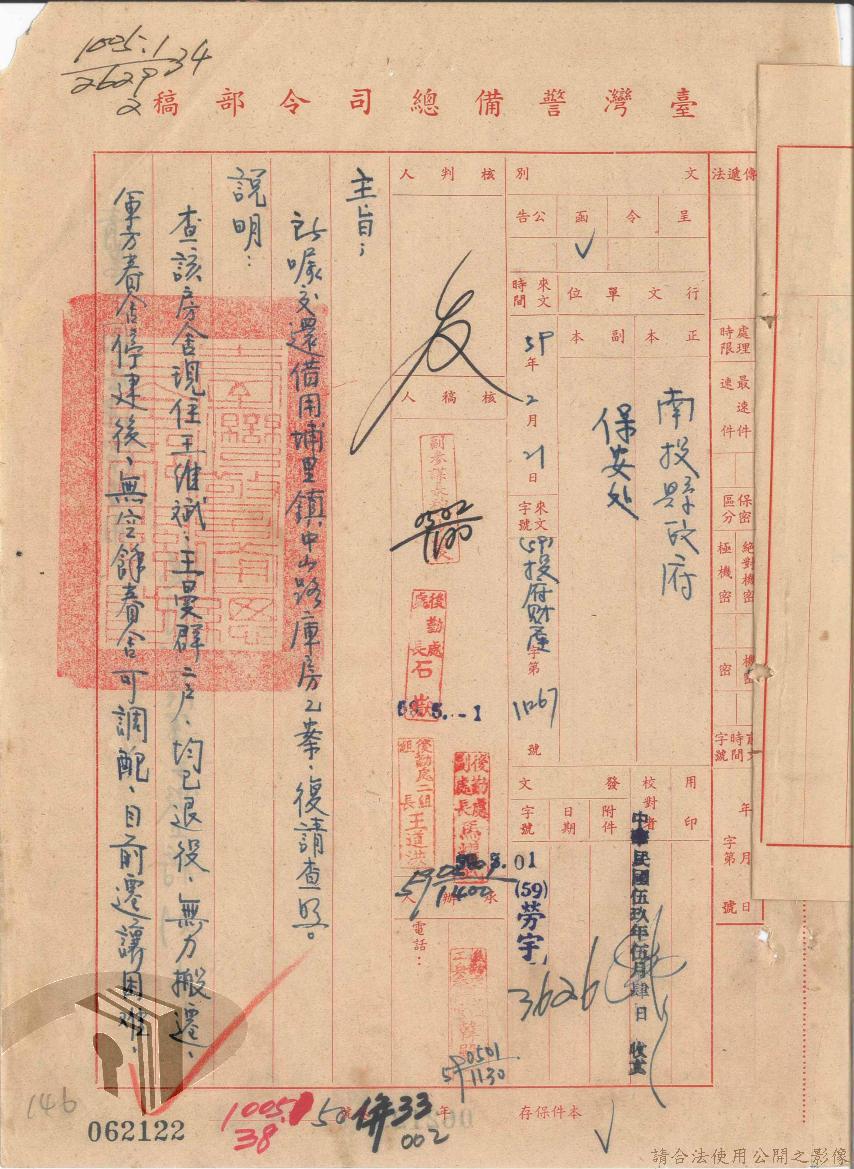 1005.1
2629 34
2
臺灣警備總司令部稿
傳遞法
處理時限
最速件
速件
保密區分
絕對機密
極機密
機密
密
年 月 日
字第 號
文別
呈
令
函 ✓
公告
行文單位
正本
副本
南投縣政府
保安處
來文時間
59年2月21日
來文字號
(59)投府財產字第11267號
用印
校對者
發文
附件
日期
字號
中華民國伍玖年伍月肆日 收文
01
(59)勞字
3626
核判人
核稿人
0502
1100
後勤處處長石嶽
59.5.-1
後勤處副處長馬
後勤處二組組長王道洪
1400
承辦人
電話:
59 0501
1130
主旨:
所囑交還借用埔里鎮中山路庫房乙案,復請查照。
說明:
查該房舍現住王維斌、王曼群二戶、均已退役、無力搬遷、
軍方眷舍停建後,無空餘眷舍可調配,目前遷讓困難。
146
062122
1005.1
38
50
併33
002
年
號
本件保存
請合法使用公開之影像